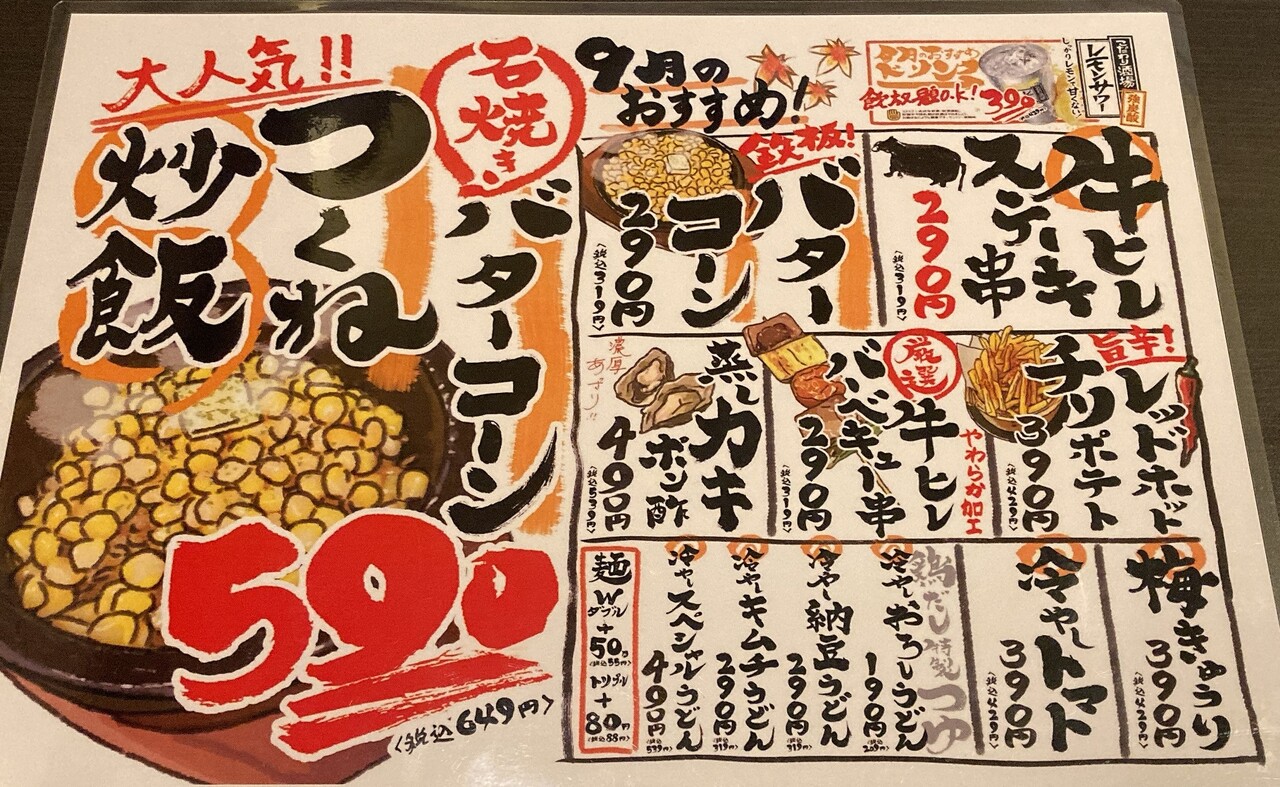 大人気!!
石焼き
バターコーン
つくね
炒飯
590
<税込649円>
9月の
おすすめ!
9月のおすすめ
ドリンク
飲放題O.K!
390
しっかりレモンで甘くない
こだわり酒場
レモンサワー
強炭酸
牛ヒレ
ステーキ
串
290円
<税込319円>
鉄板!
バター
コーン
290円
<税込319円>
旨辛!
レッドホット
チリポテト
390円
<税込429円>
厳選
やわらか加工
牛ヒレ
バーベキュー串
290円
<税込319円>
蒸しカキ
ポン酢
濃厚
あざり!!
490円
<税込539円>
梅きゅうり
390円
<税込429円>
冷やしトマト
390円
<税込429円>
鶏だし特製つゆ
冷やしおろしうどん
190円
(税込209円)
冷やし納豆うどん
290円
(税込319円)
冷やしキムチうどん
290円
(税込319円)
冷やしスペシャルうどん
490円
(税込539円)
麺
W
ダブル
+
50円
(税込55円)
トリプル
+
80円
(税込88円)